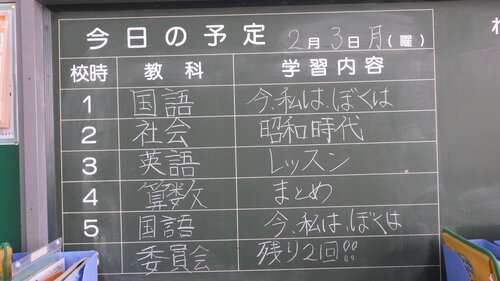 今日の予定 2月3日月(曜)
校時 教科 学習内容
1 国語 今、私は、ぼくは
2 社会 昭和時代
3 英語 レッスン
4 算数 まとめ
5 国語 今、私は、ぼくは
委員会 残り2回!!